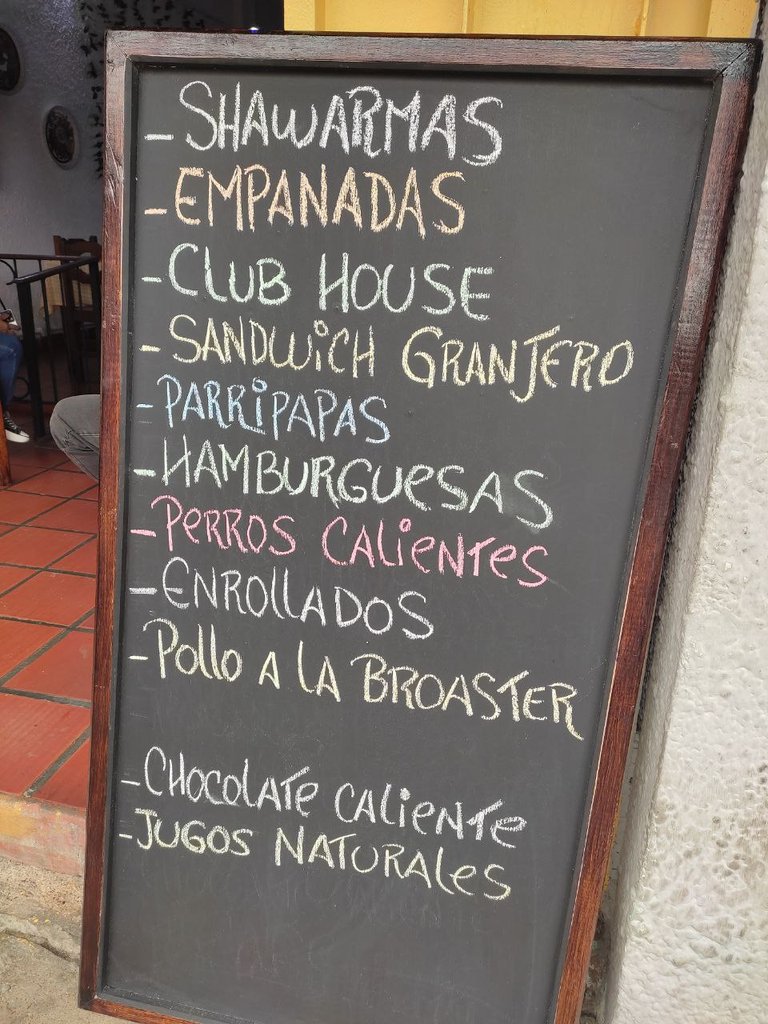 - SHAWARMAS
- EMPANADAS
- CLUB HOUSE
- SANDWiCH GRANJERO
- PARRiPAPAS
- HAMBURGUESAS
- PERROS CALiENTES
- ENROLLADOS
- Pollo A LA BROASTER
- CHOCOLATE CALiENTE
- JUGOS NATURALES